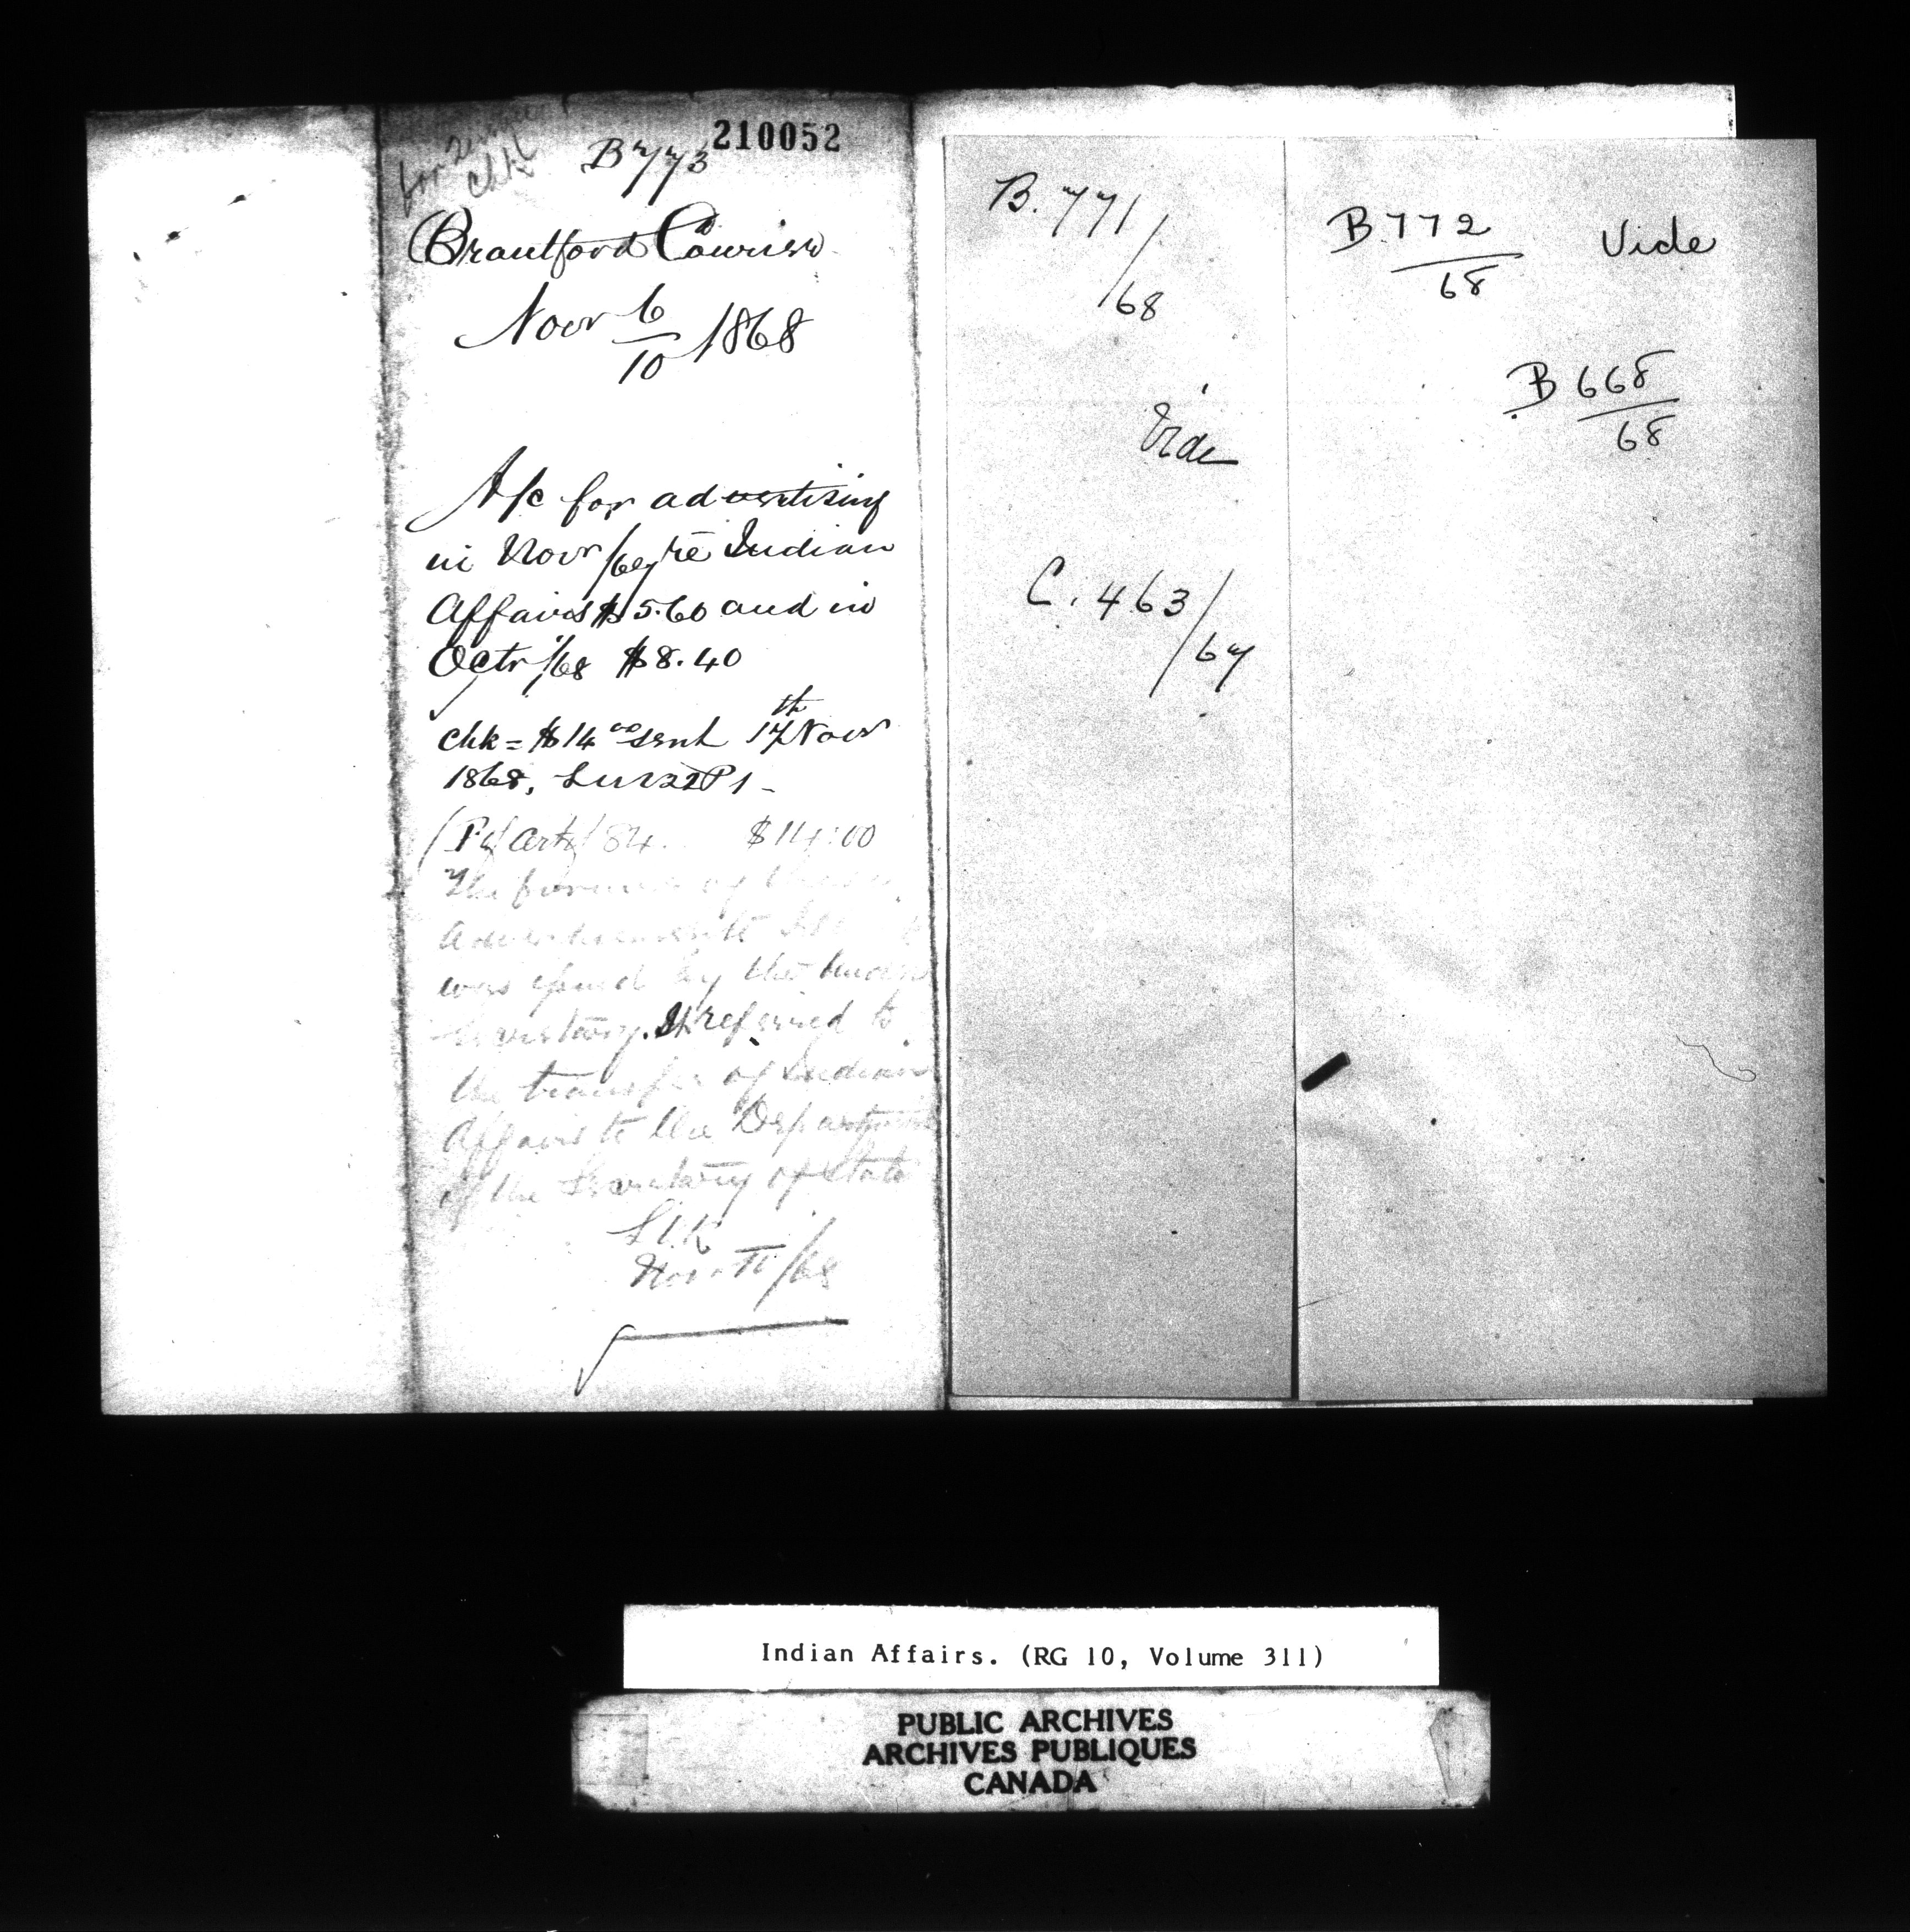 210052
B 773
Brantford Courier
Novr 6/10 1868
A/c for advertising
in Novr /67 re Indian
Affairs $5.60 and in
Octr /68 $8.40
chk = $14 00 sent 17th Novr
1868,
$14.00
The former of these
was by the
It referred to
the transfer of Indian
Affairs to the Department
of the Secretary of State
Nov /68
B. 771/68
Vide
C. 463/67
B 772/68 Vide
B 668/68
Indian Affairs. (RG 10, Volume 311)
PUBLIC ARCHIVES
ARCHIVES PUBLIQUES
CANADA